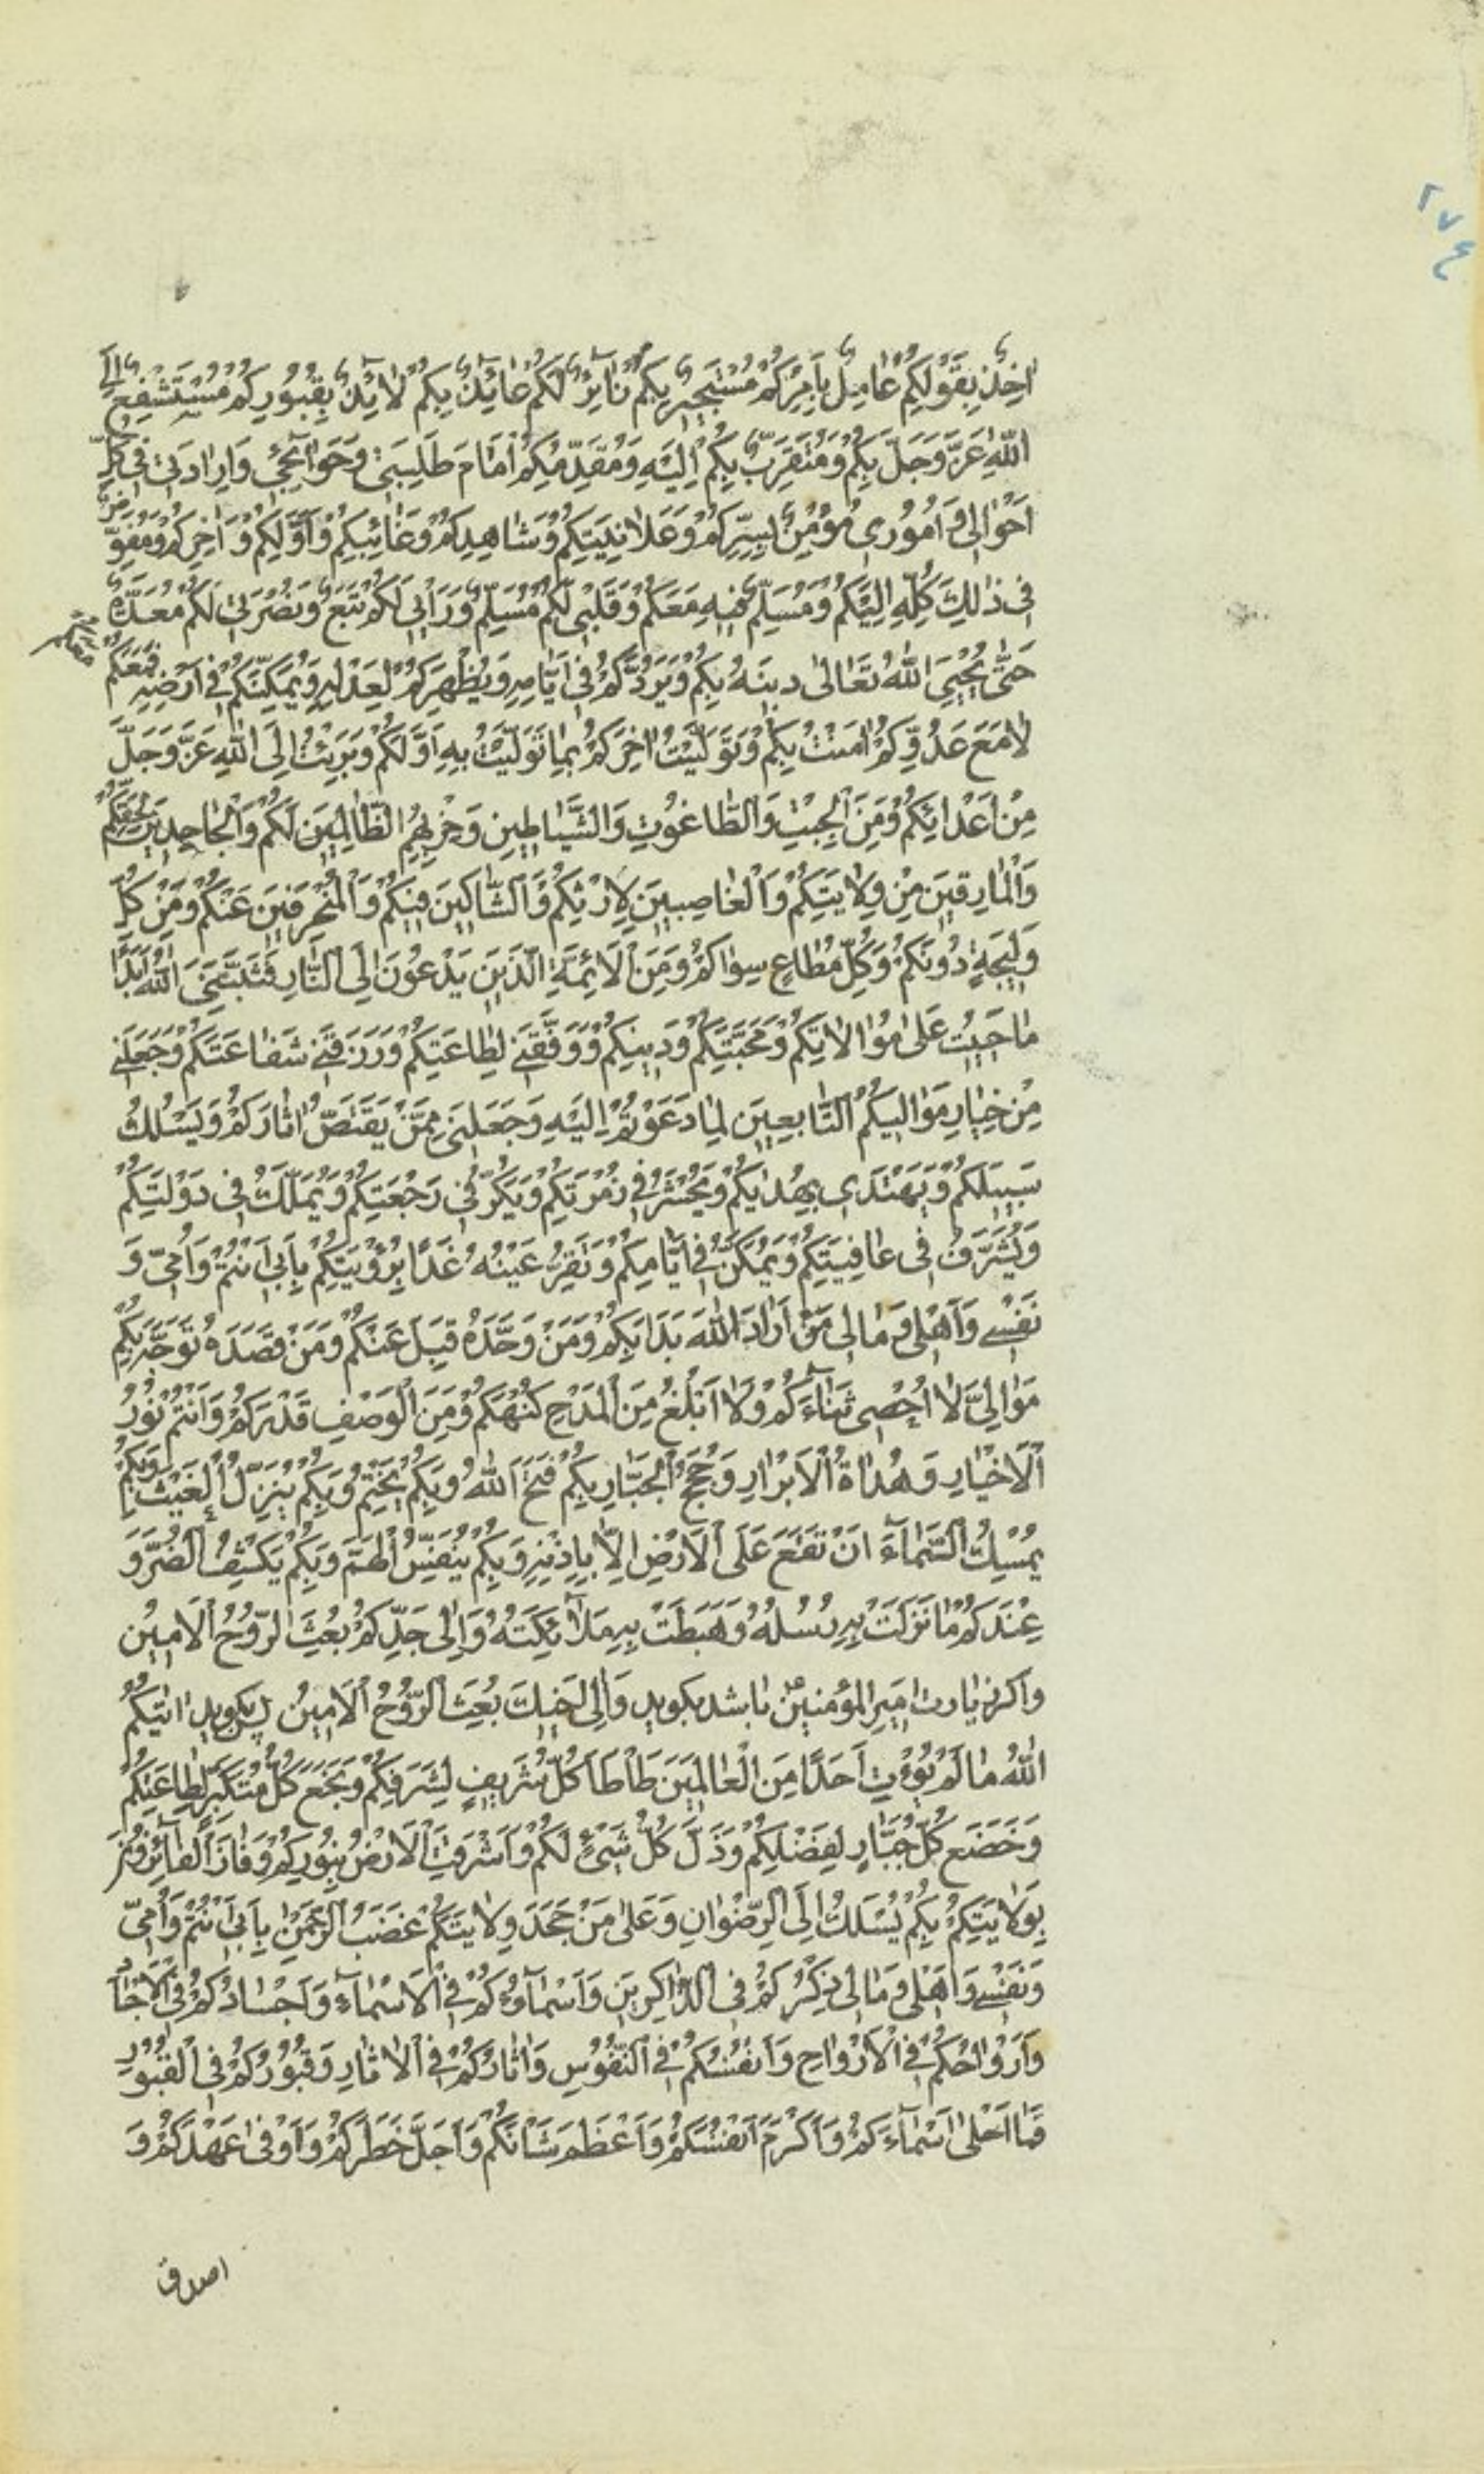 ۲۷۴
اٰخِذٌ بِقَوْلِكُمْ عٰامِلٌ بِاَمْرِكُمْ مُسْتَجِيرٌ بِكُمْ زٰآئِرٌ لَكُمْ عٰآئِذٌ بِكُمْ لٰآئِذٌ بِقُبُورِكُمْ مُسْتَشْفِعٌ اِلَى
اللّٰهِ عَزَّ وَجَلَّ بِكُمْ وَمُتَقَرِّبٌ بِكُمْ اِلَيْهِ وَمُقَدِّمُكُمْ اَمٰامَ طَلِبَتِى وَحَوٰآئِجِى وَاِرٰادَتِى فِى كُلِّ
اَحْوٰالِى وَ اُمُورِى مُؤْمِنٌ بِسِرِّكُمْ وَعَلٰانِيَتِكُمْ وَشٰاهِدِكُمْ وَغٰآئِبِكُمْ وَاَوَّلِكُمْ وَ اٰخِرِكُمْ وَمُفَوِّضٌ
فِى ذٰلِكَ كُلِّهِ اِلَيْكُمْ وَمُسَلِّمٌ فِيهِ مَعَكُمْ وَقَلْبِى لَكُمْ مُسَلِّمٌ وَرَاْيِى لَكُمْ تَبَعٌ وَنُصْرَتِى لَكُمْ مُعَدَّةٌ
حَتّٰى يُحْيِىَ اللّٰهُ تَعٰالٰى دِينَهُ بِكُمْ وَيَرُدَّكُمْ فِى اَيّٰامِهِ وَيُظْهِرَكُمْ لِعَدْلِهِ وَيُمَكِّنَكُمْ فِى اَرْضِهِ فَمَعَكُمْ
لٰا مَعَ عَدُوِّكُمْ اٰمَنْتُ بِكُمْ وَتَوَلَّيْتُ اٰخِرَكُمْ بِمٰا تَوَلَّيْتُ بِهِ اَوَّلَكُمْ وَبَرِئْتُ اِلَى اللّٰهِ عَزَّ وَجَلَّ
مِنْ اَعْدٰائِكُمْ وَمِنَ الْجِبْتِ وَالطّٰاغُوتِ وَالشَّيٰاطِينِ وَحِزْبِهِمُ الظّٰالِمِينَ لَكُمْ وَالْجٰاحِدِينَ لِحَقِّكُمْ
وَالْمٰارِقِينَ مِنْ وِلٰايَتِكُمْ وَالْغٰاصِبِينَ لِاِرْثِكُمْ وَالشّٰاكِّينَ فِيكُمْ وَالْمُنْحَرِفِينَ عَنْكُمْ وَمِنْ كُلِّ
وَلِيجَةٍ دُونَكُمْ وَكُلِّ مُطٰاعٍ سِوٰاكُمْ وَمِنَ الْاَئِمَّةِ الَّذِينَ يَدْعُونَ اِلَى النّٰارِ فَثَبَّتَنِىَ اللّٰهُ اَبَدًا
مٰا حَيِيتُ عَلٰى مُوٰالٰاتِكُمْ وَمَحَبَّتِكُمْ وَدِينِكُمْ وَوَفَّقَنِى لِطٰاعَتِكُمْ وَرَزَقَنِى شَفٰاعَتَكُمْ وَجَعَلَنِى
مِنْ خِيٰارِ مَوٰالِيكُمُ التّٰابِعِينَ لِمٰا دَعَوْتُمْ اِلَيْهِ وَجَعَلَنِى مِمَّنْ يَقْتَصُّ اٰثٰارَكُمْ وَيَسْلُكُ
سَبِيلَكُمْ وَيَهْتَدِى بِهُدٰيكُمْ وَيُحْشَرُ فِى زُمْرَتِكُمْ وَيَكُرُّ فِى رَجْعَتِكُمْ وَيُمَلَّكُ فِى دَوْلَتِكُمْ
وَيُشَرَّفُ فِى عٰافِيَتِكُمْ وَيُمَكَّنُ فِى اَيّٰامِكُمْ وَتَقِرُّ عَيْنُهُ غَدًا بِرُؤْيَتِكُمْ بِاَبِى اَنْتُمْ وَاُمِّى وَ
نَفْسِى وَاَهْلِى وَمٰالِى مَنْ اَرٰادَ اللّٰهَ بَدَاَ بِكُمْ وَمَنْ وَحَّدَهُ قَبِلَ عَنْكُمْ وَمَنْ قَصَدَهُ تَوَجَّهَ بِكُمْ
مَوٰالِىَّ لٰا اُحْصِى ثَنٰآءَكُمْ وَلٰا اَبْلُغُ مِنَ الْمَدْحِ كُنْهَكُمْ وَمِنَ الْوَصْفِ قَدْرَكُمْ وَاَنْتُمْ نُورُ
الْاَخْيٰارِ وَهُدٰاةُ الْاَبْرٰارِ وَحُجَجُ الْجَبّٰارِ بِكُمْ فَتَحَ اللّٰهُ وَبِكُمْ يَخْتِمُ وَبِكُمْ يُنَزِّلُ الْغَيْثَ وَبِكُمْ
يُمْسِكُ السَّمٰآءَ اَنْ تَقَعَ عَلَى الْاَرْضِ اِلّٰا بِاِذْنِهِ وَبِكُمْ يُنَفِّسُ الْهَمَّ وَبِكُمْ يَكْشِفُ الضُّرَّ وَ
عِنْدَكُمْ مٰا نَزَلَتْ بِهِ رُسُلُهُ وَهَبَطَتْ بِهِ مَلٰآئِكَتُهُ وَاِلٰى جَدِّكُمْ بُعِثَ الرُّوحُ الْاَمِينُ
واكر زيارت امير المؤمنين ع باشد بكويد وَاِلٰى اَخِيكَ بُعِثَ الرُّوحُ الْاَمِينُ پس بكويد اٰتٰيكُمُ
اللّٰهُ مٰا لَمْ يُؤْتِ اَحَدًا مِنَ الْعٰالَمِينَ طَاْطَاَ كُلُّ شَرِيفٍ لِشَرَفِكُمْ وَبَخَعَ كُلُّ مُتَكَبِّرٍ لِطٰاعَتِكُمْ
وَخَضَعَ كُلُّ جَبّٰارٍ لِفَضْلِكُمْ وَذَلَّ كُلُّ شَىْءٍ لَكُمْ وَاَشْرَقَتِ الْاَرْضُ بِنُورِكُمْ وَفٰازَ الْفٰآئِزُونَ
بِوِلٰايَتِكُمْ بِكُمْ يُسْلَكُ اِلَى الرِّضْوٰانِ وَعَلٰى مَنْ جَحَدَ وِلٰايَتَكُمْ غَضَبُ الرَّحْمٰنِ بِاَبِى اَنْتُمْ وَاُمِّى
وَنَفْسِى وَاَهْلِى وَمٰالِى ذِكْرُكُمْ فِى الذّٰاكِرِينَ وَاَسْمٰآؤُكُمْ فِى الْاَسْمٰآءِ وَاَجْسٰادُكُمْ فِى الْاَجْسٰادِ
وَاَرْوٰاحُكُمْ فِى الْاَرْوٰاحِ وَاَنْفُسُكُمْ فِى النُّفُوسِ وَاٰثٰارُكُمْ فِى الْاٰثٰارِ وَقُبُورُكُمْ فِى الْقُبُورِ
فَمٰا اَحْلٰى اَسْمٰآءَكُمْ وَاَكْرَمَ اَنْفُسَكُمْ وَاَعْظَمَ شَاْنَكُمْ وَاَجَلَّ خَطَرَكُمْ وَاَوْفٰى عَهْدَكُمْ وَ
اصدق